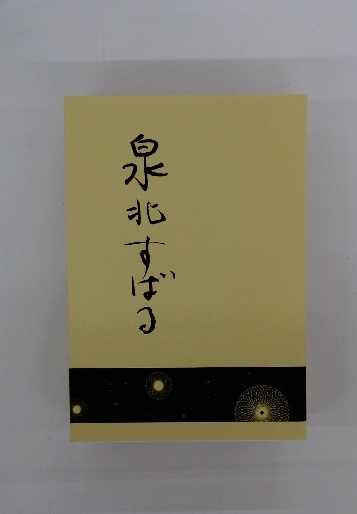 泉北すばる